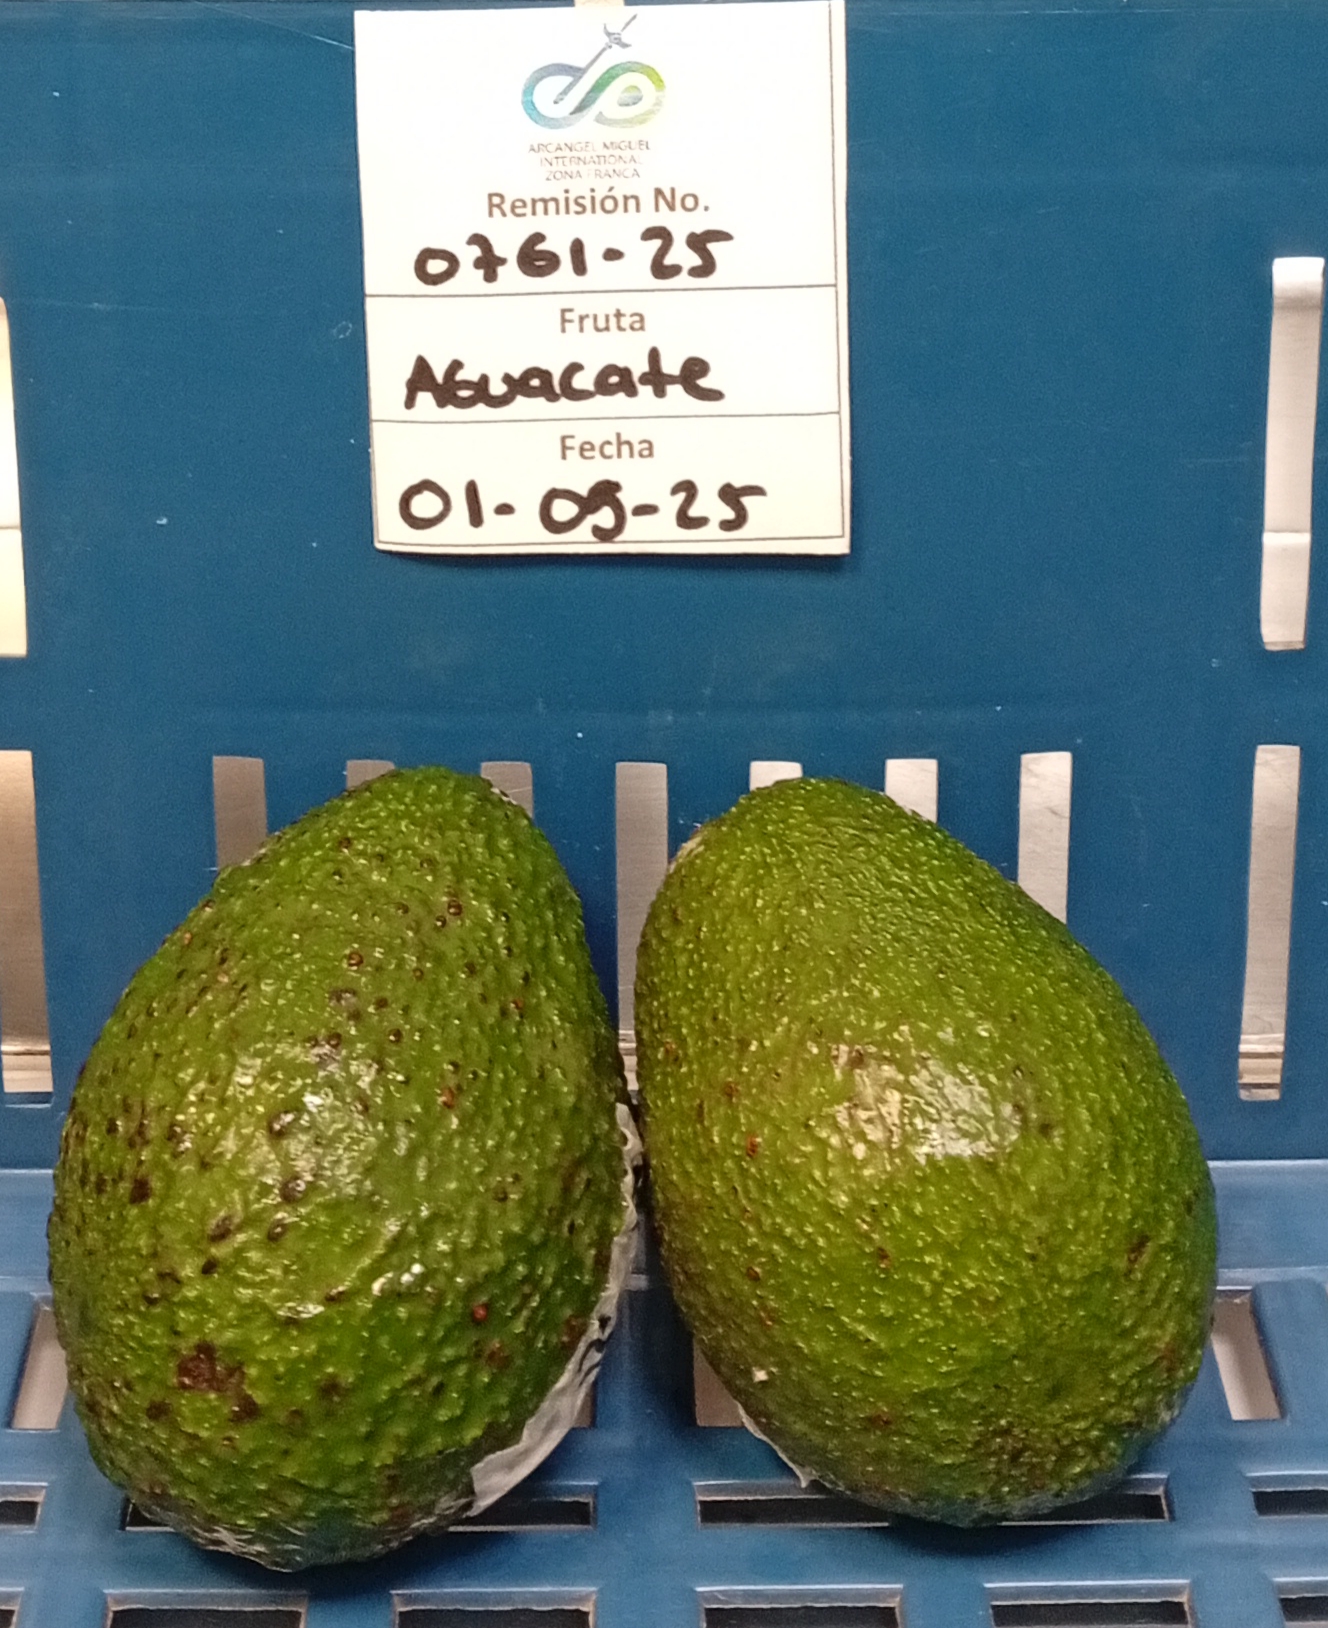 ARCANGEL MIGUEL
INTERNATIONAL
ZONA FRANCA
Remisión No.
0761-25
Fruta
Aguacate
Fecha
01-09-25